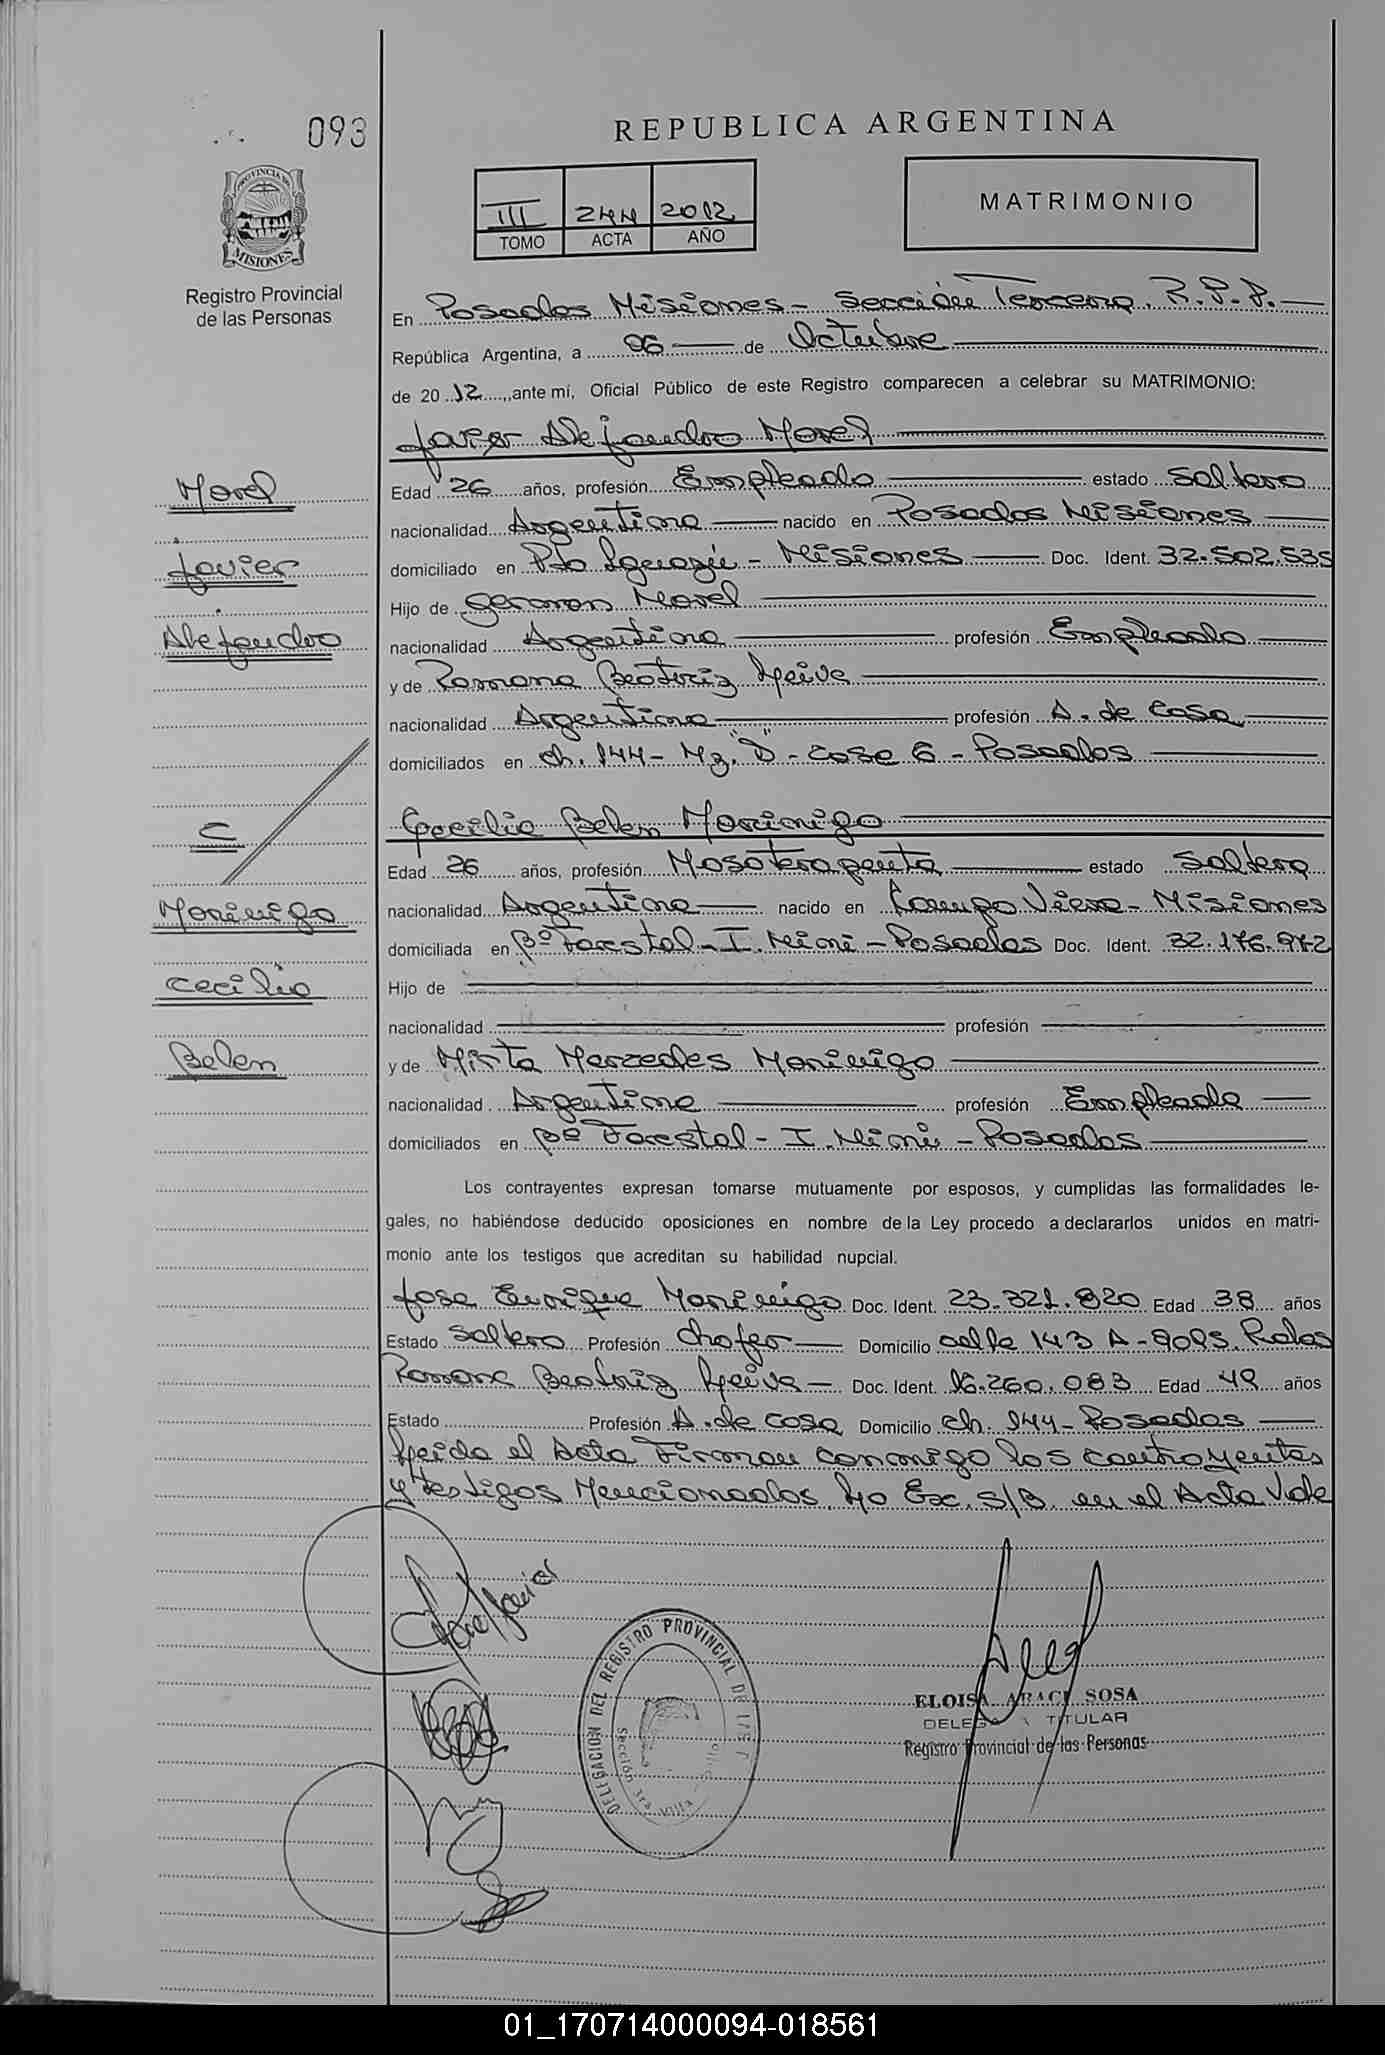 093
REPUBLICA ARGENTINA
PROVINCIA DE
MISIONES
Registro Provincial
de las Personas
III 244 2012
TOMO ACTA AÑO
MATRIMONIO
En Posadas Misiones - Sección Tercera. R.P.P.
República Argentina, a 06 de Octubre
de 2012, ante mí, Oficial Público de este Registro comparecen a celebrar su MATRIMONIO:
Javier Alejandro Morel
Morel
Edad 26 años, profesión Empleado estado soltero
nacionalidad Argentina nacido en Posadas Misiones
Javier
domiciliado en Pto Iguazú - Misiones Doc. Ident. 32.502.535
Hijo de German Morel
Alejandro
nacionalidad Argentina profesión Empleado
y de Ramona Beatriz Leiva
nacionalidad Argentina profesión A. de Casa
domiciliados en ch. 144 - Mz. "D" - casa 6 - Posadas
Cecilia Belen Morinigo
C
Edad 26 años, profesión Masoterapeuta estado soltera
Morinigo
nacionalidad Argentina nacido en Campo Viera - Misiones
domiciliada en Bº Forestal - I. Mini - Posadas Doc. Ident. 32.176.972
Cecilia
Hijo de
nacionalidad profesión
Belen
y de Mirta Mercedes Morinigo
nacionalidad Argentina profesión Empleada
domiciliados en Bº Forestal - I. Mini - Posadas
Los contrayentes expresan tomarse mutuamente por esposos, y cumplidas las formalidades le-
gales, no habiéndose deducido oposiciones en nombre de la Ley procedo a declararlos unidos en matri-
monio ante los testigos que acreditan su habilidad nupcial.
Jose Enrique Morinigo Doc. Ident. 23.321.820 Edad 38 años
Estado soltero Profesión chofer Domicilio calle 143 A - 9095. Pdas
Ramona Beatriz Leiva - Doc. Ident. 16.260.083 Edad 49 años
Estado Profesión A. de casa Domicilio ch. 144 - Posadas
Leida el Acta Firman conmigo los contrayentes
y testigos Mencionados. No Exc. S/B en el Acta Vale
Javier
DELEGACION DEL REGISTRO PROVINCIAL DE LAS P
Sección 3ra. Villa
ELOISA ARACI SOSA
DELEGADA TITULAR
Registro Provincial de las Personas
01_170714000094-018561